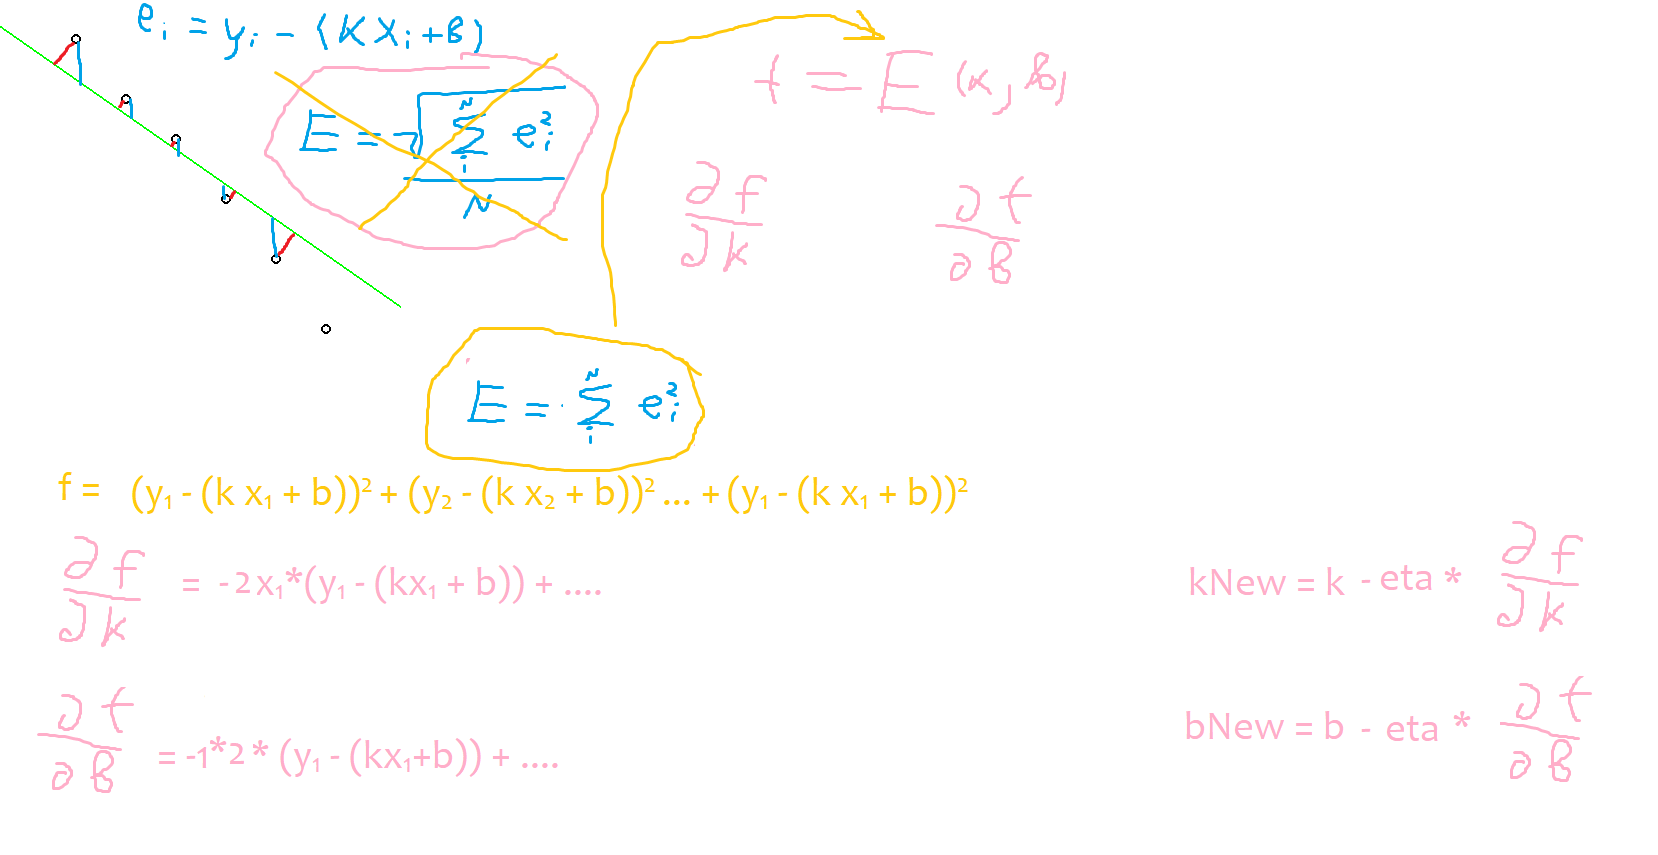 eᵢ = yᵢ - (k xᵢ + b)
E = √ Σᵢᴺ eᵢ² / N
f = E (k, b)
∂f / ∂k    ∂f / ∂b
E = Σᵢᴺ eᵢ²
f = (y₁ - (k x₁ + b))² + (y₂ - (k x₂ + b))² ... + (y₁ - (k x₁ + b))²
∂f / ∂k = -2 x₁*(y₁ - (kx₁ + b)) + ....
kNew = k - eta * ∂f / ∂k
∂f / ∂b = -1*2 * (y₁ - (kx₁+b)) + ....
bNew = b - eta * ∂f / ∂b